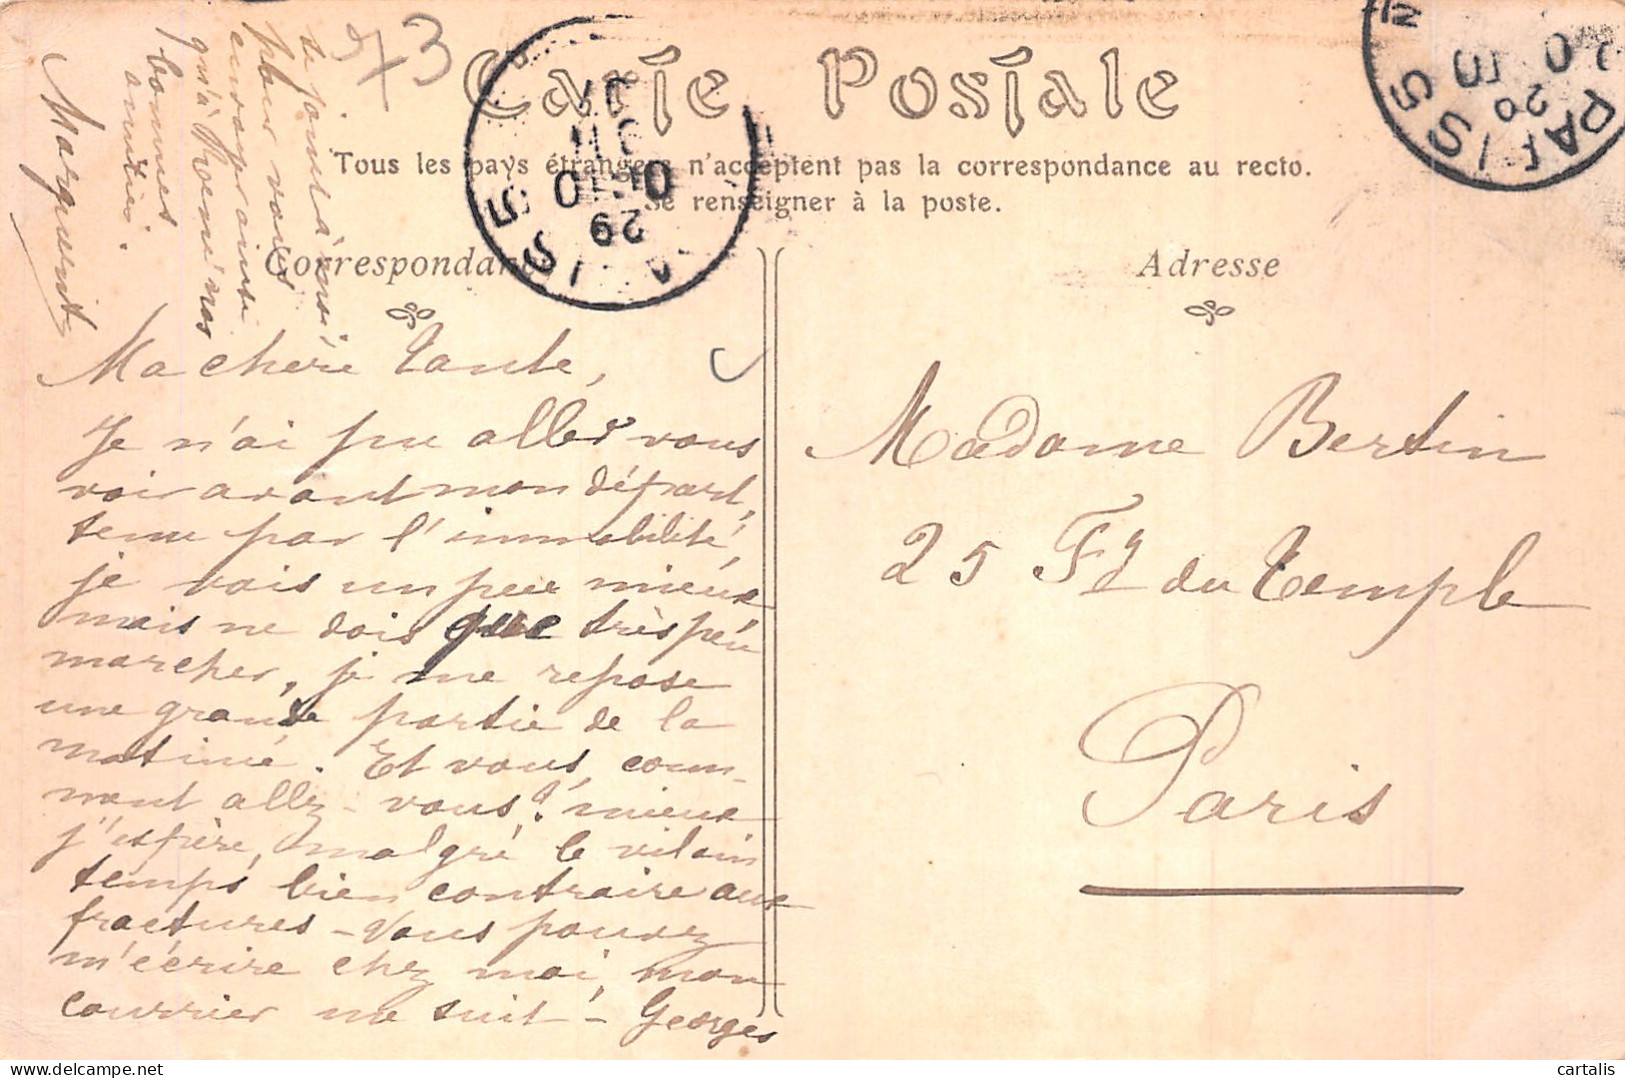 Carte Postale
Tous les pays étrangers n'acceptent pas la correspondance au recto.
Se renseigner à la poste.
Correspondance
Adresse
573
PARIS 55
29
PARIS 55
20
Ma chère tante,
Je n'ai pu aller vous
voir avant mon départ,
tenu par l'immobilité,
je vais un peu mieux
mais ne dois que très peu
marcher, je me repose
une grande partie de la
matiné. Et vous, com-
ment allez-vous? mieux
j'espère, malgré le vilain
temps bien contraire aux
fractures - Vous pouvez
m'écrire chez moi, mon
courrier me suit - Georges
se joint à
pour vous
qu'à nos
bonnes
amitiés.
Marguerite
Madame Bertin
25 Fg du Temple
Paris
delcampe.net
cartalis